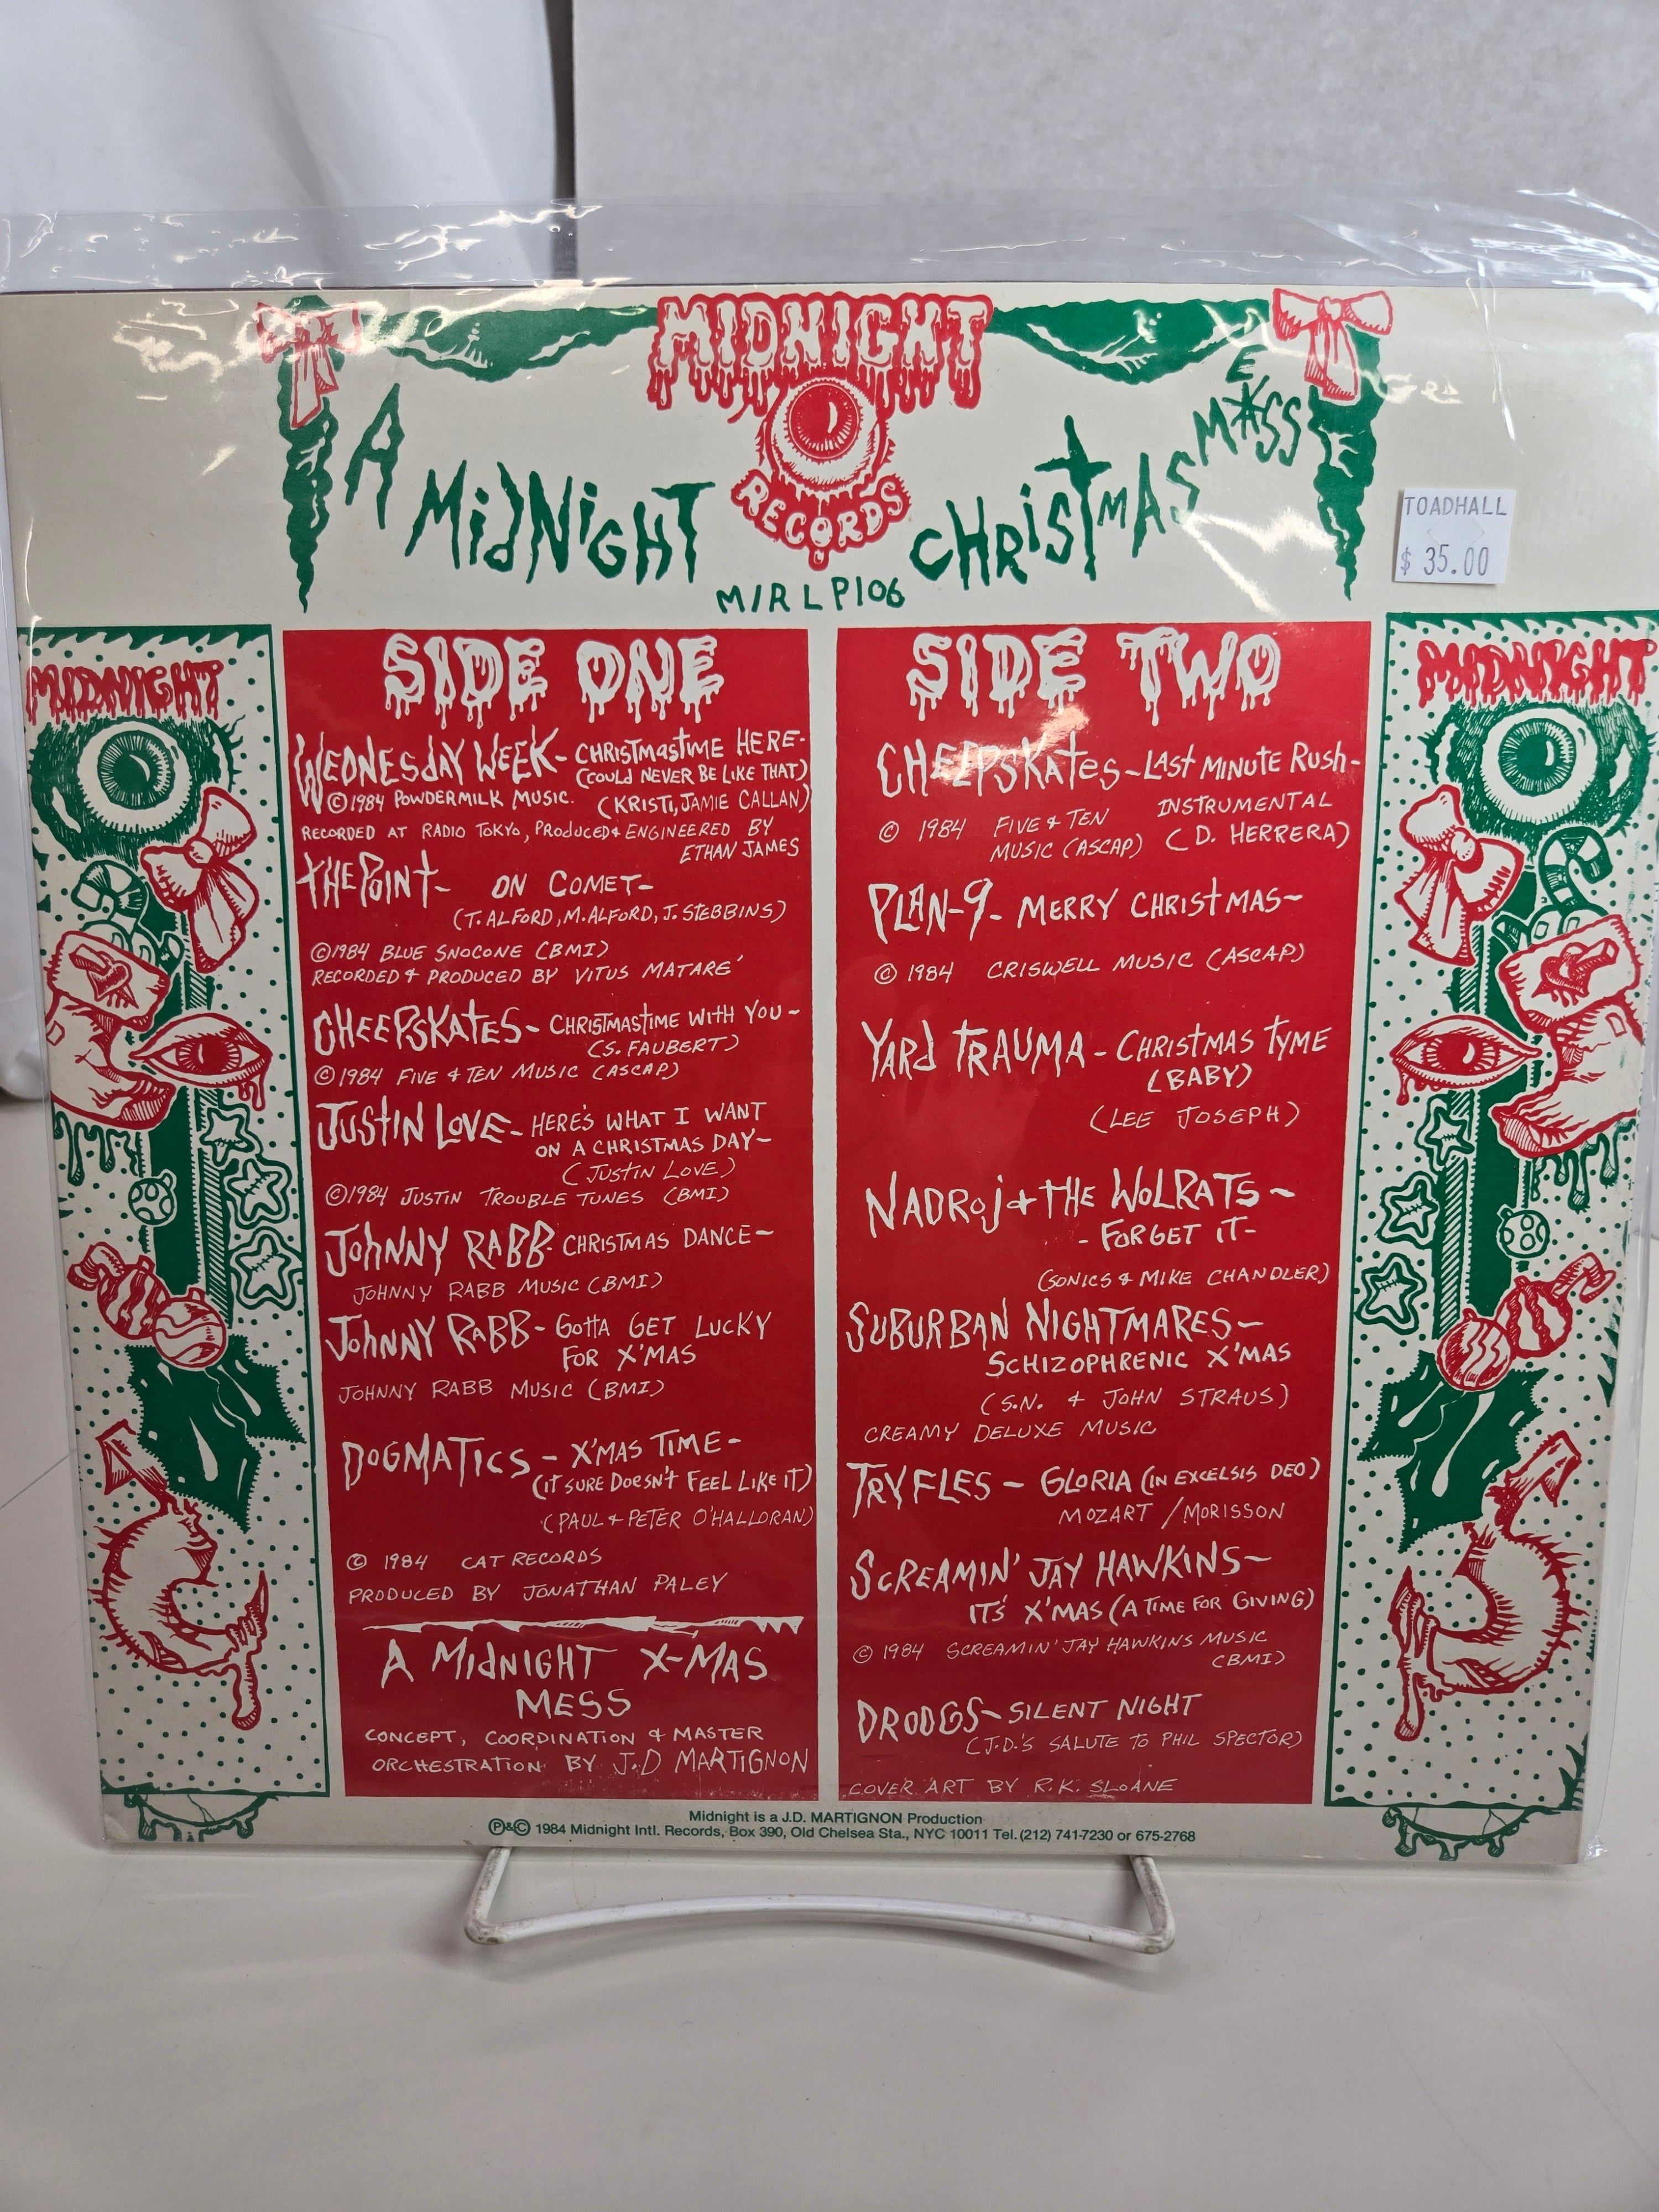 MIDNIGHT
RECORDS
A MIDNIGHT CHRISTMAS M*ASS
E
MIRLP106
TOADHALL
$ 35.00
MIDNIGHT
MIDNIGHT
SIDE ONE
WEDNESDAY WEEK- CHRISTMASTIME HERE-
(COULD NEVER BE LIKE THAT)
©1984 POWDERMILK MUSIC. (KRISTI, JAMIE CALLAN)
RECORDED AT RADIO TOKYO, PRODUCED & ENGINEERED BY
ETHAN JAMES
THE POINT- ON COMET-
(T. ALFORD, M. ALFORD, J. STEBBINS)
©1984 BLUE SNOCONE (BMI)
RECORDED & PRODUCED BY VITUS MATARE'
CHEEPSKATES- CHRISTMASTIME WITH YOU-
(S. FAUBERT)
©1984 FIVE & TEN MUSIC (ASCAP)
JUSTIN LOVE- HERE'S WHAT I WANT
ON A CHRISTMAS DAY-
(JUSTIN LOVE)
©1984 JUSTIN TROUBLE TUNES (BMI)
JOHNNY RABB- CHRISTMAS DANCE-
JOHNNY RABB MUSIC (BMI)
JOHNNY RABB- GOTTA GET LUCKY
FOR X'MAS
JOHNNY RABB MUSIC (BMI)
DOGMATICS- X'MAS TIME-
(IT SURE DOESN'T FEEL LIKE IT)
(PAUL & PETER O'HALLORAN)
© 1984 CAT RECORDS
PRODUCED BY JONATHAN PALEY
A MIDNIGHT X-MAS
MESS
CONCEPT, COORDINATION & MASTER
ORCHESTRATION BY J.D MARTIGNON
SIDE TWO
CHEEPSKATES-LAST MINUTE RUSH-
INSTRUMENTAL
© 1984 FIVE & TEN
MUSIC (ASCAP) (D. HERRERA)
PLAN-9- MERRY CHRISTMAS-
© 1984 CRISWELL MUSIC (ASCAP)
YARD TRAUMA- CHRISTMAS TYME
(BABY)
(LEE JOSEPH)
NADROJ & THE WOLRATS-
- FORGET IT-
(SONICS & MIKE CHANDLER)
SUBURBAN NIGHTMARES-
SCHIZOPHRENIC X'MAS
(S.N. & JOHN STRAUS)
CREAMY DELUXE MUSIC
TRYFLES- GLORIA (IN EXCELSIS DEO)
MOZART / MORISSON
SCREAMIN' JAY HAWKINS-
IT'S X'MAS (A TIME FOR GIVING)
© 1984 SCREAMIN' JAY HAWKINS MUSIC
(BMI)
DROOGS-SILENT NIGHT
(J.D.'S SALUTE TO PHIL SPECTOR)
COVER ART BY R.K. SLOANE
Midnight is a J.D. MARTIGNON Production
Ⓟ&© 1984 Midnight Intl. Records, Box 390, Old Chelsea Sta., NYC 10011 Tel.(212) 741-7230 or 675-2768